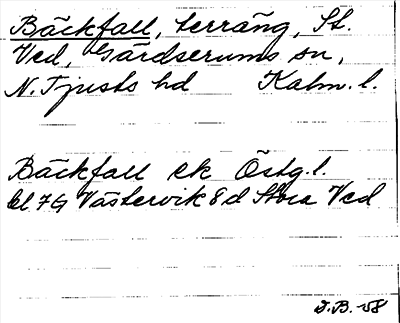 Bäckfall, terräng, St.
Ved, Gärdserums sn,
N. Tjusts hd Kalm. l.
Bäckfall ek Östg. l.
bl 7G Västervik 8d Stora Ved
D.B. -58